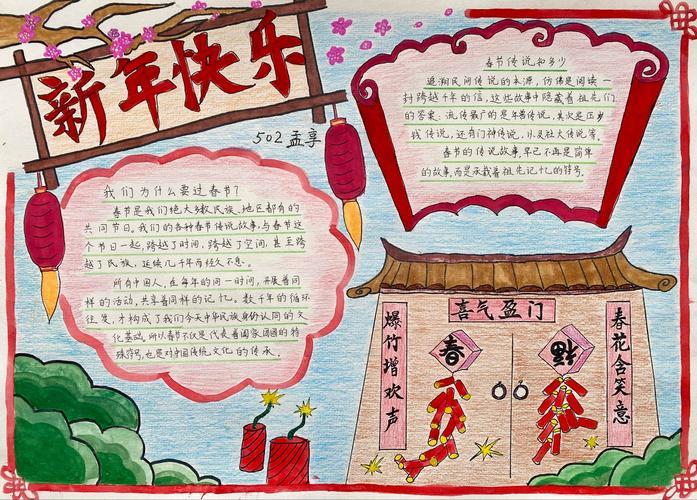 新年快乐
502 孟享
我们为什么要过春节?
春节是我们绝大多数民族、地区都有的
共同节日。我们的各种春节传说故事,与春节这
个节日一起,跨越了时间,跨越了空间,甚至跨
越了民族,延续几千年而经久不息。
所有中国人,在每年的同一时间,开展着同
样的活动,共享着同样的记忆。数千年的循环
往复,才构成了我们今天中华民族身份认同的文
化基础,所以春节不仅是代表着阖家团圆的特
殊符号,也是对中国传统文化的传承。
春节传说知多少
追溯民间传说的来源,仿佛是阅读一
封跨越千年的信,这些故事中隐藏着祖先们
的答案:流传最广的是年兽传说,其次是压岁
钱传说,还有门神传说,以及社火传说等。
春节的传说故事,早已不再是简单
的故事,而是承载着祖先记忆的符号。
喜气盈门
爆竹增欢声
春
春花含笑意